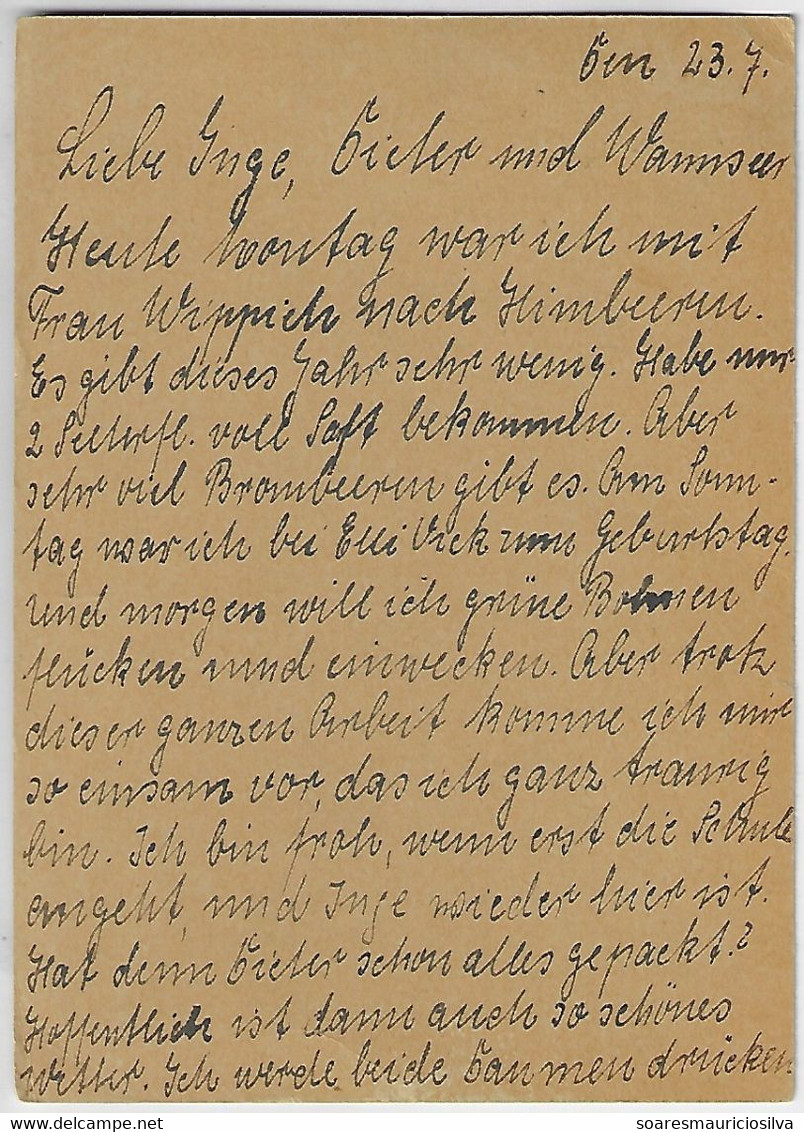 Den 23.7.
Liebe Inge, Dieter und Wannseer
Heute Montag war ich mit
Frau Wippich nach Himbeeren.
Es gibt dieses Jahr sehr wenig. Habe nur
2 Selterfl. voll Saft bekommen. Aber
sehr viel Brombeeren gibt es. Am Sonn-
tag war ich bei Elli Vick zum Geburtstag,
und morgen will ich grüne Bohnen
flücken und einwecken. Aber trotz
dieser ganzen Arbeit komme ich mir
so einsam vor, das ich ganz traurig
bin. Ich bin froh, wenn erst die Schule
angeht, und Inge wieder hier ist.
Hat denn Dieter schon alles gepackt?
Hoffentlich ist dann auch so schönes
Wetter. Ich werde beide Daumen drücken
soaresmauriciosilva